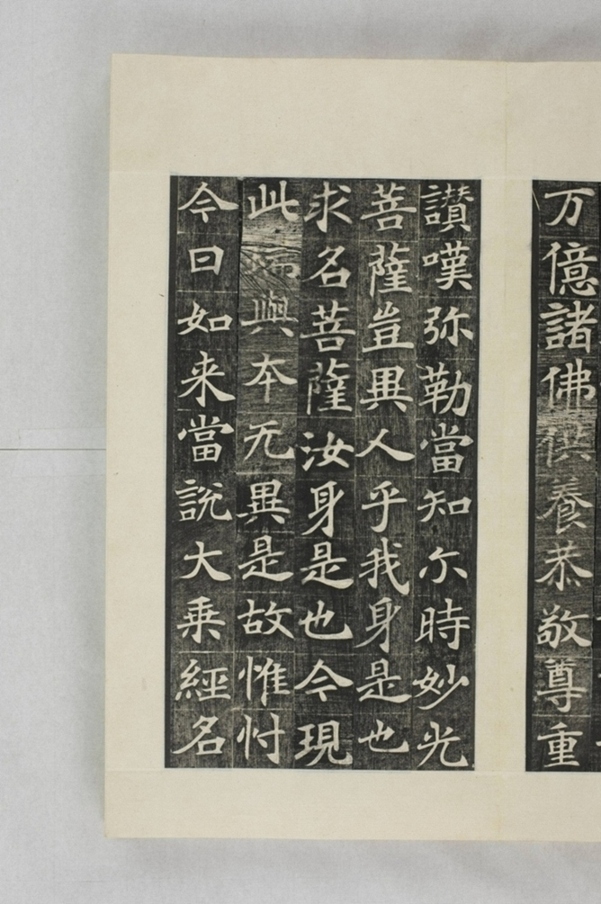 万億諸佛供養恭敬尊重
讃嘆弥勒當知尒時妙光
菩薩豈異人乎我身是也
求名菩薩汝身是也今現
此瑞與本无異是故惟忖
今日如来當說大乗經名